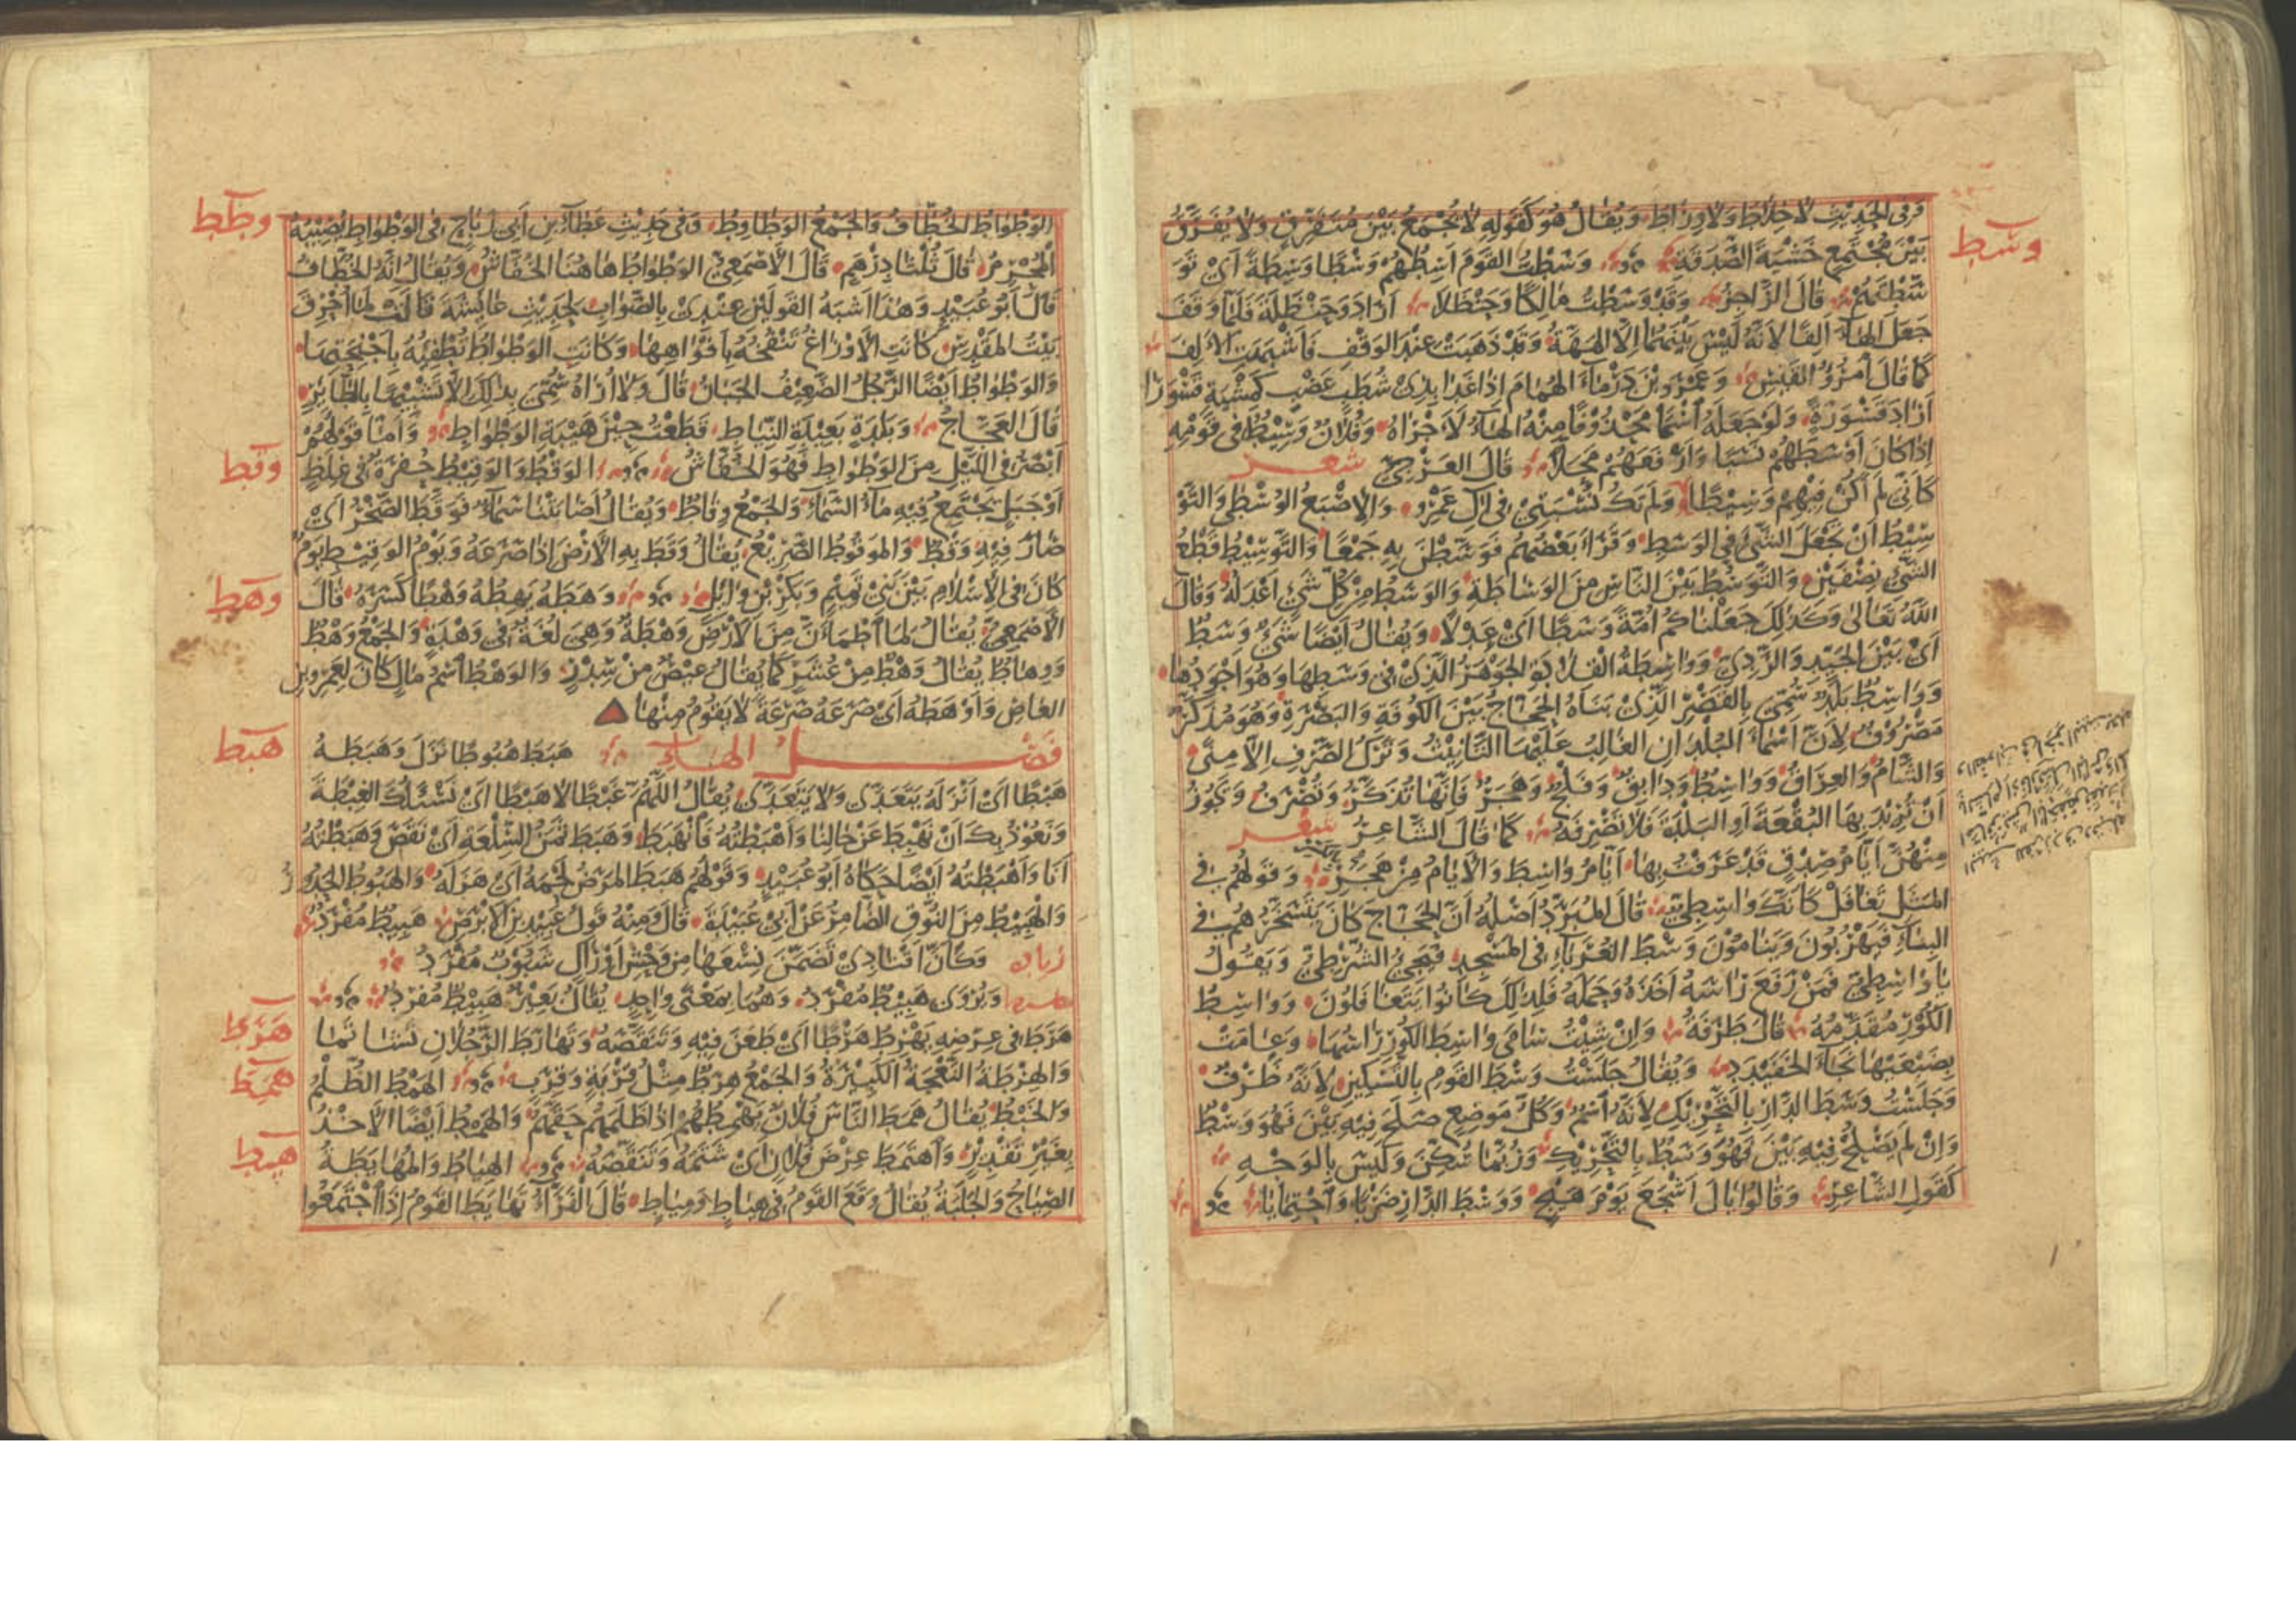 وسط
وَفِي الحَدِيثِ لَا خِلَاطَ وَلَا وِرَاطَ وَيُقَالُ هُوَ كَقَوْلِهِ لَا يُجْمَعُ بَيْنَ مُتَفَرِّقٍ وَلَا يُفَرَّقُ
بَيْنَ مُجْتَمِعٍ خَشْيَةَ الصَّدَقَةِ وَسَطْتُ القَوْمَ أَسِطُهُمْ وَسْطًا وَسِطَةً أَيْ تَوَ
سَّطْتُهُمْ قَالَ الرَّاجِزُ وَقَدْ وَسَطْتُ مَالِكًا وَحَنْظَلَا أَرَادَ وَحَنْظَلَةَ فَلَمَّا وَقَفَ
جَعَلَ الهَاءَ أَلِفًا لِأَنَّهُ لَيْسَ بَيْنَهُمَا إِلَّا الهَهَّةُ وَقَدْ ذَهَبَتْ عِنْدَ الوَقْفِ فَأَشْبَهَتِ الأَلِفَ
كَمَا قَالَ امْرُؤُ القَيْسِ وَعَمْرُو بْنُ دَرْمَاءَ الهُمَامُ إِذَا غَدَا بِذِي شُطَبٍ عَضْبٍ كَمِشْيَةِ قَسْوَرَا
أَرَادَ قَسْوَرَةً وَلَوْ جَعَلَهُ اسْمًا مَحْذُوفًا مِنْهُ الهَاءُ لَأَجْرَاهُ وَفُلَانٌ وَسِيطٌ فِي قَوْمِهِ
إِذَا كَانَ أَوْسَطَهُمْ نَسَبًا وَأَرْفَعَهُمْ مَحَلًّا قَالَ العَرْجِيُّ شعر
كَأَنِّي لَمْ أَكُنْ فِيهِمْ وَسِيطًا وَلَمْ تَكُ نِسْبَتِي فِي آلِ عَمْرِو وَالإِصْبَعُ الوُسْطَى وَالتَّوْ
سِيطُ أَنْ تَجْعَلَ الشَّيْءَ فِي الوَسَطِ وَقَرَأَ بَعْضُهُمْ فَوَسَّطْنَ بِهِ جَمْعًا وَالتَّوْسِيطُ قَطْعُ
الشَّيْءِ نِصْفَيْنِ وَالتَّوَسُّطُ بَيْنَ النَّاسِ مِنَ الوَسَاطَةِ وَالوَسَطُ مِنْ كُلِّ شَيْءٍ أَعْدَلُهُ وَقَالَ
اللهُ تَعَالَى وَكَذَلِكَ جَعَلْنَاكُمْ أُمَّةً وَسَطًا أَيْ عَدْلًا وَيُقَالُ أَيْضًا شَيْءٌ وَسَطٌ
أَيْ بَيْنَ الجَيِّدِ وَالرَّدِيِّ وَوَاسِطَةُ القِلَادَةِ الجَوْهَرُ الَّذِي فِي وَسَطِهَا وَهُوَ أَجْوَدُهَا
وَوَاسِطٌ بَلَدٌ سُمِّيَ بِالقَصْرِ الَّذِي بَنَاهُ الحَجَّاجُ بَيْنَ الكُوفَةِ وَالبَصْرَةِ وَهُوَ مُذَكَّرٌ
مَصْرُوفٌ لِأَنَّ أَسْمَاءَ البُلْدَانِ الغَالِبُ عَلَيْهَا التَّأْنِيثُ وَتَرْكُ الصَّرْفِ إِلَّا مِنًى
وَالشَّامُ وَالعِرَاقُ وَوَاسِطٌ وَدَابِقٌ وَفَلْجٌ وَهَجَرٌ فَإِنَّهَا تُذَكَّرُ وَتُصْرَفُ وَيَجُوزُ
أَنْ تُرِيدَ بِهَا البُقْعَةَ أَوِ البَلْدَةَ فَلَا تَصْرِفَهُ كَمَا قَالَ الشَّاعِرُ شعر
مِنْهُنَّ أَيَّامُ صِدْقٍ قَدْ عَرَفْتَ بِهَا أَيَّامَ وَاسِطَ وَالأَيَّامُ مِنْ هَجَرَ وَقَوْلُهُمْ فِي
المَثَلِ تَغَافَلْ كَأَنَّكَ وَاسِطِيٌّ قَالَ المُبَرِّدُ أَصْلُهُ أَنَّ الحَجَّاجَ كَانَ يَتَسَخَّرُهُمْ فِي
البِنَاءِ فَيَهْرُبُونَ وَيَنَامُونَ وَسْطَ الغُرَبَاءِ فِي المَسْجِدِ فَيَجِيءُ الشُّرْطِيُّ وَيَقُولُ
يَا وَاسِطِيُّ فَمَنْ رَفَعَ رَأْسَهُ أَخَذَهُ وَحَمَلَهُ فَلِذَلِكَ كَانُوا يَتَغَافَلُونَ وَوَاسِطُ
الكُورِ مُقَدَّمُهُ قَالَ طَرَفَةُ وَإِنْ شِئْتُ سَامَى وَاسِطَ الكُورِ رَأْسُهَا وَعَامَتْ
بِضَبْعَيْهَا نَجَاءَ الخَفَيْدَدِ وَيُقَالُ جَلَسْتُ وَسْطَ القَوْمِ بِالتَّسْكِينِ لِأَنَّهُ ظَرْفٌ
وَجَلَسْتُ وَسَطَ الدَّارِ بِالتَّحْرِيكِ لِأَنَّهُ اسْمٌ وَكُلُّ مَوْضِعٍ صَلَحَ فِيهِ بَيْنَ فَهُوَ وَسْطٌ
وَإِنْ لَمْ يَصْلُحْ فِيهِ بَيْنَ فَهُوَ وَسَطٌ بِالتَّحْرِيكِ وَرُبَّمَا سُكِّنَ وَلَيْسَ بِالوَجْهِ
كَقَوْلِ الشَّاعِرِ وَقَالُوا يَالَ أَشْجَعَ يَوْمَ هَيْجٍ وَوَسْطَ الدَّارِ ضَرْبًا وَاحْتِمَايَا
وطط
الوَطْوَاطُ الخُطَّافُ وَالجَمْعُ الوَطَاوِيطُ وَفِي حَدِيثِ عَطَاءِ بْنِ أَبِي رَبَاحٍ فِي الوَطْوَاطِ يُصِيبُهُ
المُحْرِمُ قَالَ ثُلُثَا دِرْهَمٍ قَالَ الأَصْمَعِيُّ الوَطْوَاطُ هَاهُنَا الخُفَّاشُ وَيُقَالُ إِنَّهُ الخُطَّافُ
قَالَ أَبُو عُبَيْدٍ وَهَذَا أَشْبَهُ القَوْلَيْنِ عِنْدِي بِالصَّوَابِ لِحَدِيثِ عَائِشَةَ قَالَتْ لَمَّا أُحْرِقَ
بَيْتُ المَقْدِسِ كَانَتِ الأَوْزَاغُ تَنْفُخُهُ بِأَفْوَاهِهَا وَكَانَتِ الوَطْوَاطُ تُطْفِئُهُ بِأَجْنِحَتِهَا
وَالوَطْوَاطُ أَيْضًا الرَّجُلُ الضَّعِيفُ الجَبَانُ قَالَ وَلَا أُرَاهُ سُمِّيَ بِذَلِكَ إِلَّا تَشْبِيهًا بِالطَّائِرِ
قَالَ العَجَّاجُ وَبَلْدَةٍ بَعِيدَةِ النِّيَاطِ قَطَعْتُ حِينَ هَيْبَةِ الوَطْوَاطِ وَأَمَّا قَوْلُهُمْ
وقط
أَبْصَرُ فِي اللَّيْلِ مِنَ الوَطْوَاطِ فَهُوَ الخُفَّاشُ الوَقْطُ وَالوَقِيطُ حُفْرَةٌ فِي غِلَظٍ
أَوْ جَبَلٍ يَجْتَمِعُ فِيهِ مَاءُ السَّمَاءِ وَالجَمْعُ وِقَاطٌ وَيُقَالُ أَصَابَتْنَا سَمَاءٌ فَوَقَّطَ الصَّخْرُ أَيْ
صَارَ فِيهِ وَقْطٌ وَالمَوْقُوطُ الصَّرِيعُ يُقَالُ وَقَطَ بِهِ الأَرْضَ إِذَا صَرَعَهُ وَيَوْمُ الوَقِيطِ يَوْمٌ
وهط
كَانَ فِي الإِسْلَامِ بَيْنَ بَنِي تَمِيمٍ وَبَكْرِ بْنِ وَائِلٍ وَهَطَهُ يَهِطُهُ وَهْطًا كَسَرَهُ قَالَ
الأَصْمَعِيُّ يُقَالُ لِمَا اطْمَأَنَّ مِنَ الأَرْضِ وَهْطَةٌ وَهِيَ لُغَةٌ فِي وَهْدَةٍ وَالجَمْعُ وَهْطٌ
وَوِهَاطٌ يُقَالُ وَهْطٌ مِنْ عُشَرٍ كَمَا يُقَالُ عِيصٌ مِنْ سِدْرٍ وَالوَهْطُ اسْمُ مَالٍ كَانَ لِعَمْرِو بْنِ
العَاصِ وَأَوْهَطَهُ أَيْ صَرَعَهُ صَرْعَةً لَا يَقُومُ مِنْهَا
هبط
فَصْلُ الهَاءِ هَبَطَ هُبُوطًا نَزَلَ وَهَبَطَهُ
هَبْطًا أَيْ أَنْزَلَهُ يَتَعَدَّى وَلَا يَتَعَدَّى يُقَالُ اللَّهُمَّ غَبْطًا لَا هَبْطًا أَيْ نَسْأَلُكَ الغِبْطَةَ
وَنَعُوذُ بِكَ أَنْ نَهْبِطَ عَنْ حَالِنَا وَأَهْبَطْتُهُ فَانْهَبَطَ وَهَبَطَ ثَمَنُ السِّلْعَةِ أَيْ نَقَصَ وَهَبَطْتُهُ
أَنَا وَأَهْبَطْتُهُ أَيْضًا حَكَاهُ أَبُو عُبَيْدٍ وَقَوْلُهُمْ هَبَطَ المَرَضُ لَحْمَهُ أَيْ هَزَلَهُ وَالهَبُوطُ الحَدُورُ
وَالهَبِيطُ مِنَ النُّوقِ الضَّامِرُ عَنْ أَبِي عُبَيْدَةَ قَالَ وَمِنْهُ قَوْلُ عَبِيدِ بْنِ الأَبْرَصِ هَبِيطٌ مُفْرَدُ
وَكَأَنَّ أَقْتَادِي تَضَمَّنَ نِسْعَهَا مِنْ وَحْشِ أَوْرَالٍ شَبُوبٌ مُفْرَدُ
وَيُرْوَى هَبِيطٌ مُفْرَدُ وَهُمَا بِمَعْنًى وَاحِدٍ يُقَالُ بَعِيرٌ هَبِيطٌ مُفْرَدٌ
هرط
هَرَطَ فِي عِرْضِهِ يَهْرِطُ هَرْطًا أَيْ طَعَنَ فِيهِ وَتَنَقَّصَهُ وَتَهَارَطَ الرَّجُلَانِ تَشَاتَمَا
همط
وَالهِرْطَةُ النَّعْجَةُ الكَبِيرَةُ وَالجَمْعُ هِرَطٌ مِثْلُ قِرْبَةٍ وَقِرَبٍ الهَمْطُ الظُّلْمُ
وَالخَبْطُ يُقَالُ هَمَطَ النَّاسَ فُلَانٌ يَهْمِطُهُمْ إِذَا ظَلَمَهُمْ حَقَّهُمْ وَالهَمْطُ أَيْضًا الأَخْذُ
هيط
بِغَيْرِ تَقْدِيرٍ وَاهْتَمَطَ عِرْضَ فُلَانٍ أَيْ شَتَمَهُ وَتَنَقَّصَهُ الهِيَاطُ وَالمُهَايَطَةُ
الصِّيَاحُ وَالجَلَبَةُ يُقَالُ وَقَعَ القَوْمُ فِي هِيَاطٍ وَمِيَاطٍ قَالَ الفَرَّاءُ تَهَايَطَ القَوْمُ إِذَا اجْتَمَعُوا